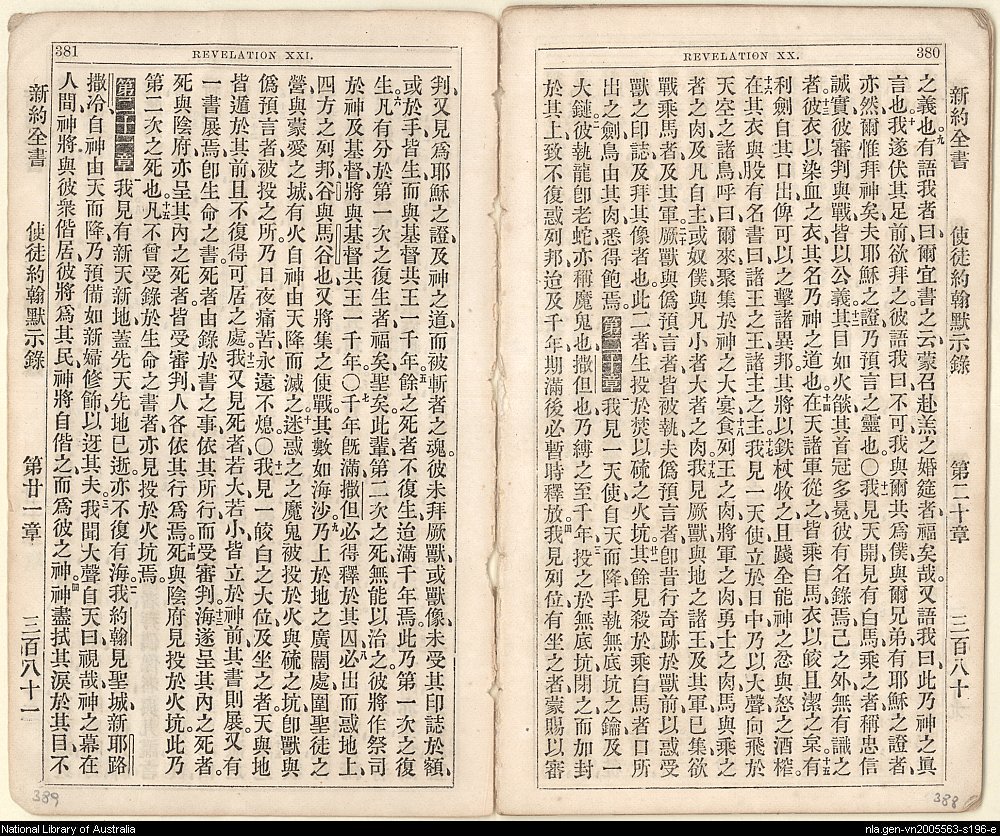 380
REVELATION XX.
新約全書 使徒約翰默示錄 第二十章 三百八十
之義也九有語我者曰、爾宜書之云、蒙召赴羔之婚筵者、福矣哉。又語我曰、此乃神之眞
言也。十我遂伏其足前欲拜之。彼語我曰、不可、我與爾共爲僕、與爾兄弟有耶穌之證者、
亦然、爾惟拜神矣、夫耶穌之證、乃預言之靈也。〇十一我見天開、見有白馬、乘之者、稱忠信
誠實、彼審判與戰、皆以公義。十二其目如火燄、其首冠多冕、彼有名錄焉、己之外無有識之
者。十三彼衣以染血之衣、其名乃神之道也。十四在天諸軍從之、皆乘白馬、衣以皎且潔之枲。十五有
利劍自其口出、俾可以之擊諸異邦、其將以鉄杖牧之、且踐全能神之忿與怒之酒榨。
十六在其衣與股有名書曰、諸王之王、諸主之主。十七我見一天使立於日中、乃以大聲向飛於
天空之諸鳥呼曰、爾來聚集於神之大宴、十八食列王之肉、將軍之肉、勇士之肉、馬與乘之
者之肉、及凡自主或奴僕、與凡小者大者之肉。十九我見厥獸與地之諸王、及其軍已集、欲
戰乘馬者及其軍。二十厥獸與僞預言者皆被執、夫僞預言者、卽昔行奇跡於獸前、以惑受
獸之印誌、及拜其像者也、此二者生投於焚以硫之火坑。廿一其餘見殺於乘白馬者口所
出之劍、鳥由其肉悉得飽焉。第二十章 一我見一天使自天而降、手執無底坑之鑰、及一
大鏈。二彼執龍、卽老蛇、亦稱魔鬼也、撒但也、乃縛之至千年、三投之於無底坑、閉之而加封
於其上、致不復惑列邦、迨及千年期滿、後必暫時釋放。四我見列位、有坐之者、蒙賜以審
388
381
REVELATION XXI.
判、又見爲耶穌之證、及神之道、而被斬者之魂、彼未拜厥獸或獸像、未受其印誌於額、
或於手、皆生而與基督共王一千年。五餘之死者不復生、迨滿千年焉、此乃第一次之復
生。六凡有分於第一次之復生者、福矣聖矣、此輩第二次之死無能以治之、彼將作祭司
於神及基督、將與基督共王一千年。〇七千年旣滿、撒但必得釋於其囚、八必出而惑地上
四方之列邦、谷與馬谷也、又將集之使戰、其數如海沙、九乃上於地之廣闊處、圍聖徒之
營、與蒙愛之城、有火自神由天降而滅之。十迷惑之之魔鬼、被投於火與硫之坑、卽獸與
僞預言者被投之所、乃日夜痛苦、永遠不熄。〇十一我見一皎白之大位、及坐之者、天與地
皆遁於其前、且不復得可居之處。十二我又見死者、若大若小、皆立於神前、其書則展、又有
一書展焉、卽生命之書、死者由錄於書之事、依其所行而受審判。十三海遂呈其內之死者、
死與陰府、亦呈其內之死者、皆受審判、人各依其行爲焉。十四死與陰府見投於火坑、此乃
第二次之死也。十五凡不曾受錄於生命之書者、亦見投於火坑焉。
第二十一章 一我見有新天新地、蓋先天先地已逝、亦不復有海。二我約翰見聖城新耶路
撒冷、自神由天而降、乃預備如新婦修飾以迓其夫。三我聞大聲自天曰、視哉、神之幕在
人間、神將與彼衆偕居、彼將爲其民、神將自偕之、而爲彼之神。四神盡拭其淚於其目、不
新約全書 使徒約翰默示錄 第廿一章 三百八十一
389
National Library of Australia
nla.gen-vn2005563-s196-e